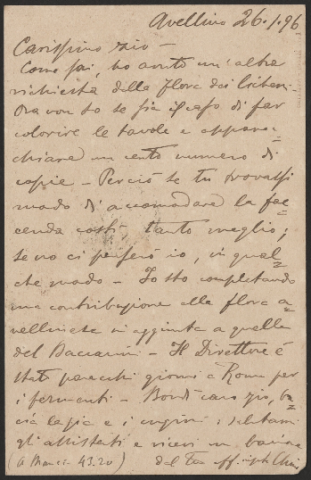 Avellino 26.1.96
Carissimo zio —
Come sai, ho avuto un'altra
richiesta della Flora dei
Ora non so se sia il caso di far
colorire le tavole e apparec-
chiare un certo numero di
copie — Perciò se tu trovassi
modo di accomodare la fac=
cenda costì tanto meglio;
se no ci penserò io, in qual
che modo — Io sto completando
una contribuzione alla flora a=
vellinese in aggiunta a quella
del Baccarini — Il Direttore è
stato parecchi giorni a Roma per
i fermenti — caro zio, ba=
cia la zia e i cugini; salutami
gli assistenti e ricevi un bacione
del tuo aff. nipote
(a 43.20)